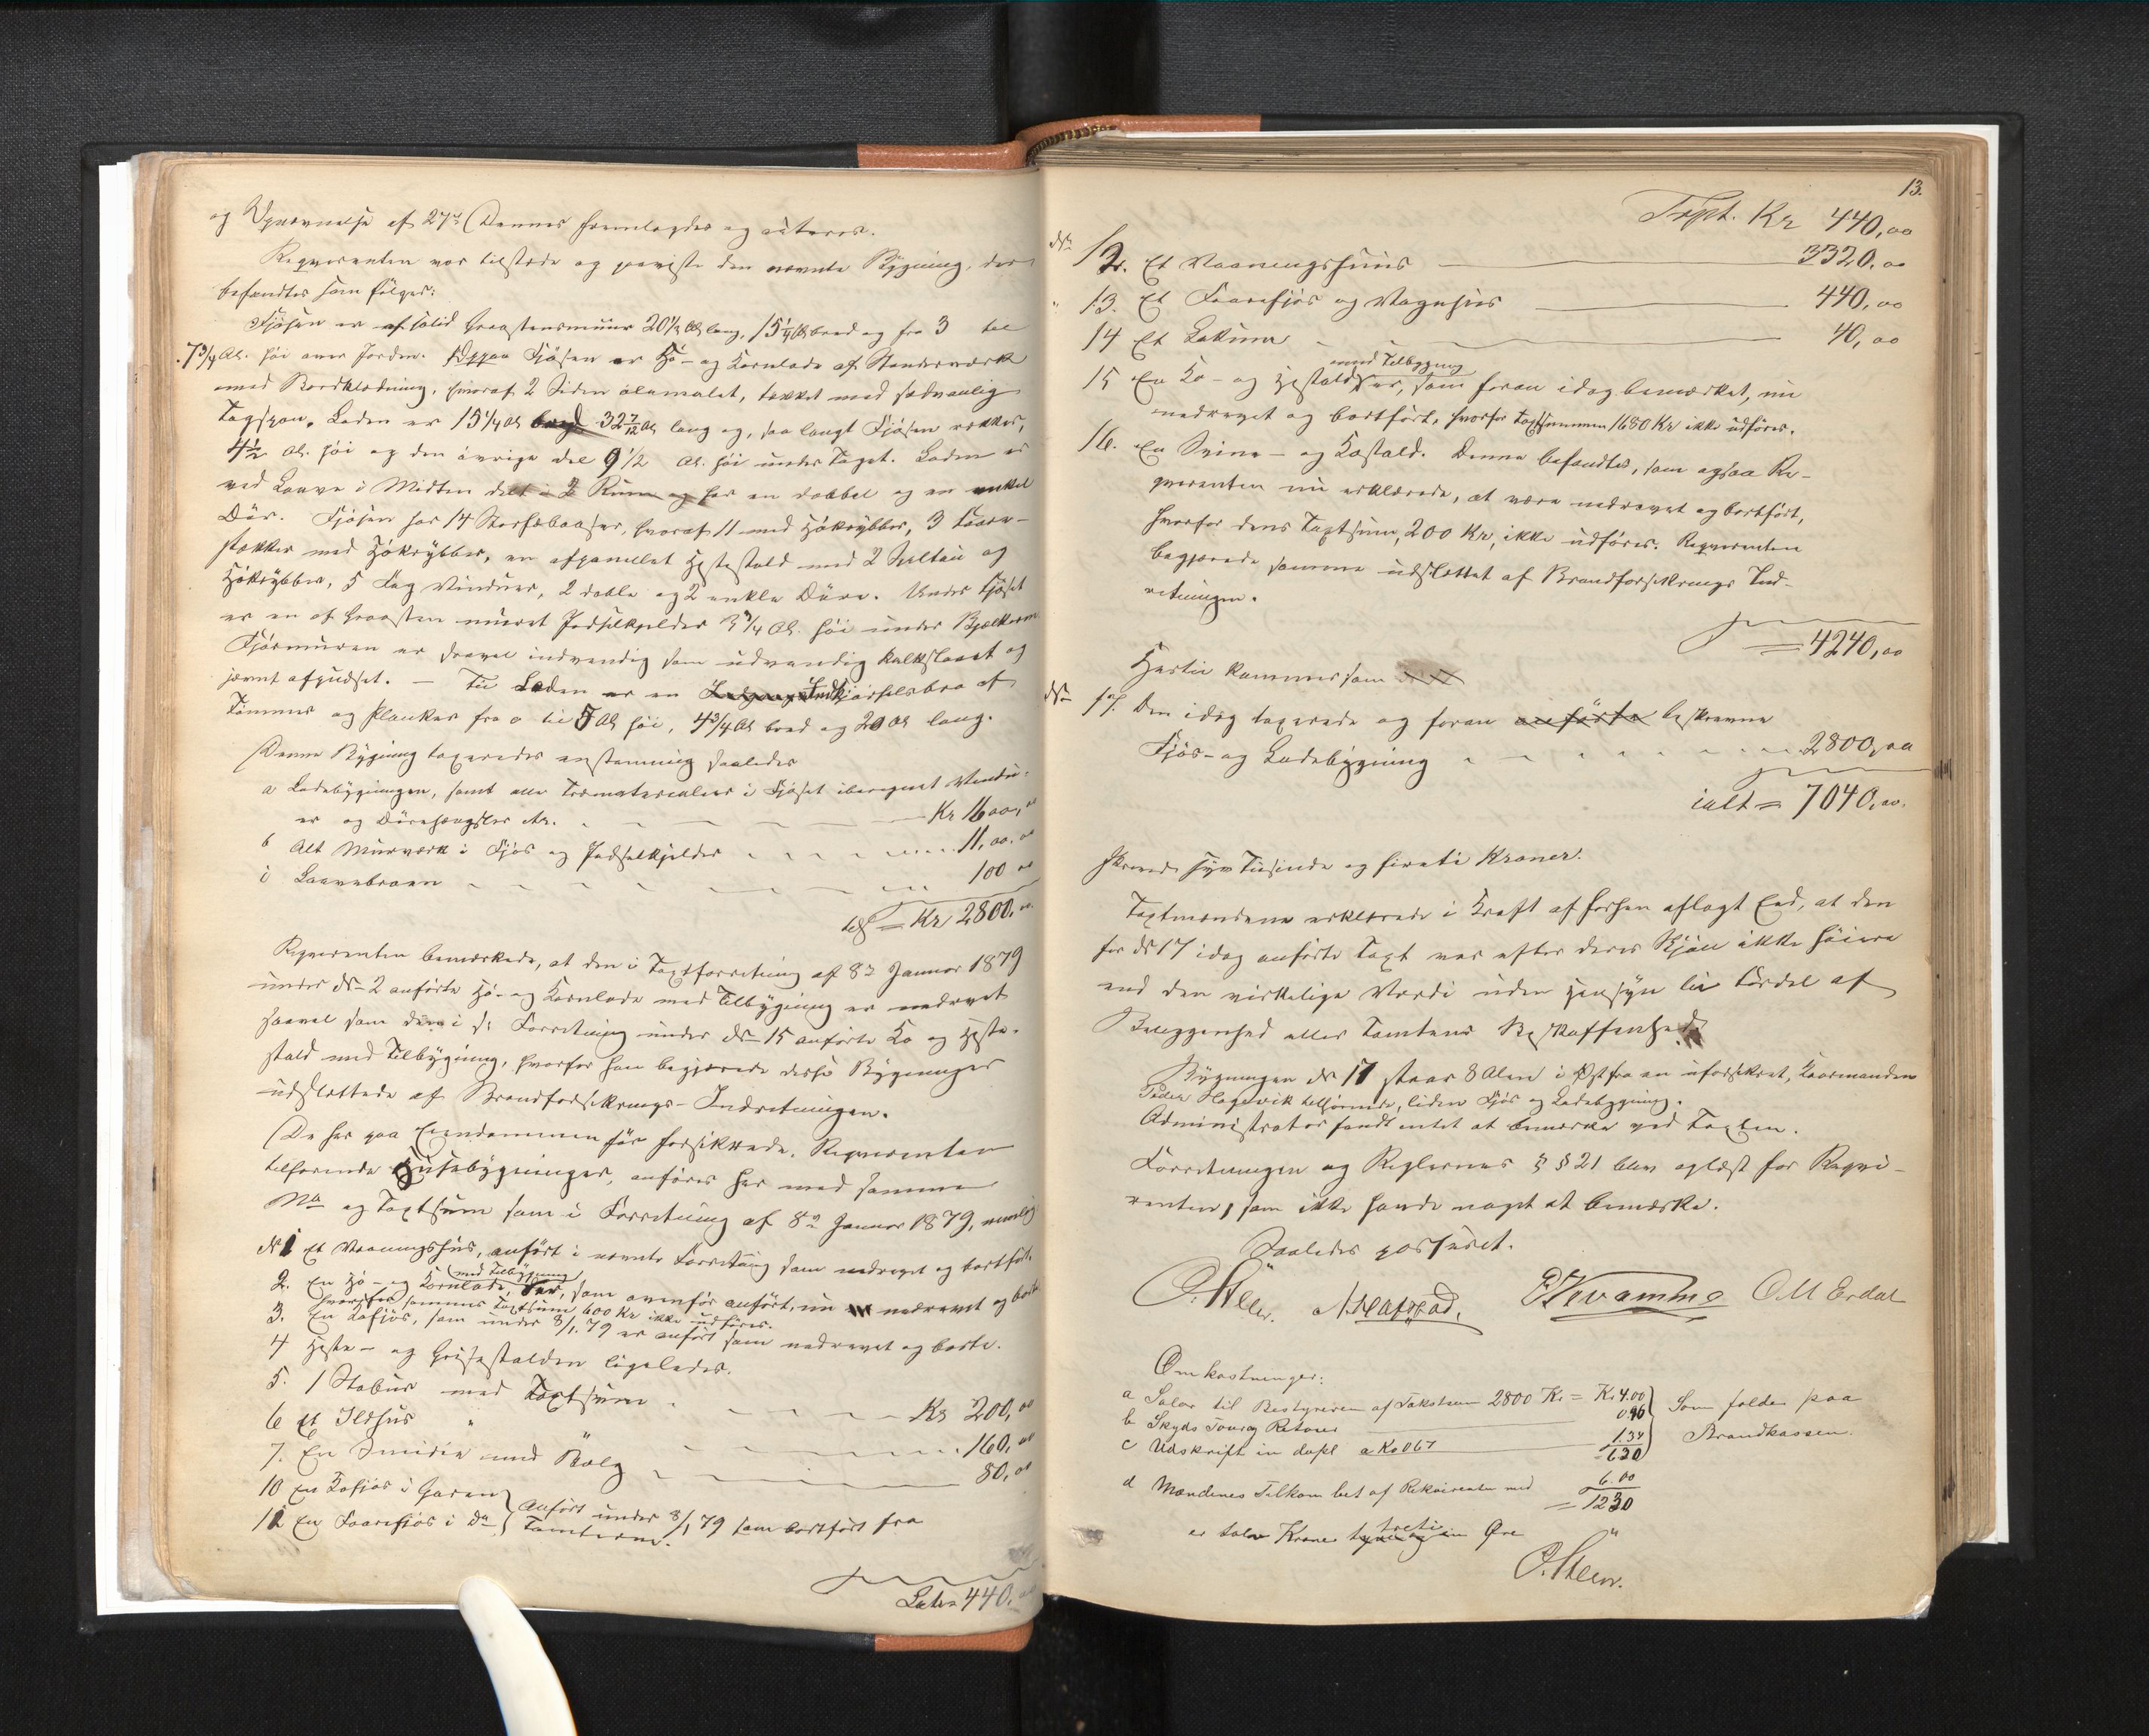 og Opnævnelse af 27de Dennes fremlagdes og citeres.
Reqvirenten var tilstede og paaviste den nævnte Bygning, der
befandtes som følger:
Fjøsen er af solid Graastensmuur 20½ Al. lang, 15¼ Al. bred og fra 3 til
7¾ Al. høi over Jorden. Oppaa Fjøsen er Hø- og Kornlade af Stenderværk
med Bordklædning, hvoraf 2 Sider oliemalet, tækket med sædvanlig
Tagspon. Laden er 15¼ Al bred 32 7/12 Al. lang og, saa langt Fjøsen rækker,
4½ Al. høi og den øvrige del 9½ Al. høi under Taget. Laden er
ved Laave i Midten delt i 2 Rum og har en dobbel og en enkel
Dør. Fjøsen har 14 Storfæbaaser, hvoraf 11 med Høkrybber, 3 Faare-
stækker med Høkrybber, en afpanelet Hestestald med 2 Spiltau og
Høkrybber, 5 Fag Vinduer, 2 doble og 2 enkle Døre. Under Fjøset
er en af Graasten muret Gjødselkjelder 3¾ Al. høi under Bjælkerne
Fjøsmuren er saavel indvendig som udvendig kalkslaaet og
jævnt afpudset. — Til Laden er en Indkjørselsbro af
Tømmer og Planker fra 0 til 5 Al høi, 4¾ Al bred og 20 Al lang.
Denne Bygning taxeredes enstemmig saaledes
a Ladebygningen, samt alle Træmaterialier i Fjøset iberegnet Vindu-
er og Dørehængsler etc. Kr 1600,00
b Alt Murværk i Fjøs og Gjødselkjelder 11,00.00
c Laavebroen 100 00
tils = Kr 2800,00
Reqvirenten bemærkede, at den i Taxtforretning af 8de Januar 1879
under No 2 anførte Hø- og Kornlade med Tilbygning er nedrevet
saavel som den i s. Forretning under No 15 anførte Ko og Heste-
stald med Tilbygning, hvorfor han begjærede disse Bygninger
udslettede af Brandforsikrings-Indretningen.
De her paa Eiendommen før forsikrede, Reqvirenten
tilhørende Huusebygninger, anføres her med samme
No og Taxtsum som i Forretning af 8de Januar 1879, nemlig
No 1 Et Vaaningshus, anført i nævnte Forretning som nedrevet og bortført.
2. En Hø- og Kornlade, med Tilbygning, som ovenfor anført, nu nedrevet og borte
hvorfor sammes Taxtsum 600 Kr ikke udføres.
3. En Kofjøs, som under 8/1. 79 er anført som nedrevet og borte.
4 Heste- og Grisestalden ligeledes.
5. 1 Stabur med Taxtsum Kr 200,00
6 Et Ildhus " 160,00
7. En Smidie med Bælg 80,00
10 En Kofjøs i Garen
12 En Faarefjøs i do } anført under 8/1 79 som bortført fra
Tomterne.
Latus 440,00
13.
Trspt. Kr 440,00
No 12. Et Vaaningshuus 3320,00
" 13. Et Faarefjøs og Vognhus 440,00
14 Et Lokum 40,00
15 En Ko- og Hestald med Tilbygning, som foran idag bemærket, nu
nedrevet og bortført, hvorfor Taxtsummen 1680 Kr ikke udføres.
16. En Svine- og Kostald. Denne befandtes, som ogsaa Re-
qvirenten nu erklærede, at være nedrevet og bortført,
hvorfor dens Taxtsum, 200 Kr, ikke udføres. Reqvirenten
begjærede samme udslettet af Brandforsikrings Ind-
retningen.
= 4240,00
Hertil kommer som
No 17. Den idag taxerede og foran anførte beskrevne
Fjøs- og Ladebygning 2800,00
ialt = 7040,00.
skriver syv Tusinde og firети Kroner.
Taxtmændene erklærede i Kraft af forhen aflagt Eed, at den
for No 17 idag anførte Taxt var efter deres Skjøn ikke høiere
end den virkelige Værdi uden Hensyn til Fordel af
Beliggenhed eller Tomtens Beskaffenhed.
Bygningen No 17 staar 8 Alen i Øst fra en uforsikret, Kaarmanden
Peder Hopsvik tilhørende, liden Fjøs og Ladebygning.
Administrator fandt intet at bemærke ved Taxten.
Forretningen og Reglernes § § 21 blev oplæst for Reqvi-
renten, som ikke havde noget at bemærke.
Saaledes passeret.
O. Steen. O M Erdal
Omkostninger:
a Salær til Bestyreren af Takstsum 2800 Kr = Kr 4.00
b Skyds Tour og Retour 0.96
c Udskrift in dupl a Kr 0 67 1.34
6.30
} Som falder paa
Brandkassen.
d Mændenes Tilkom bet af Rekvirenten med 6.00
= 12 30
er tolv Kroner treti Øre
O. Steen.